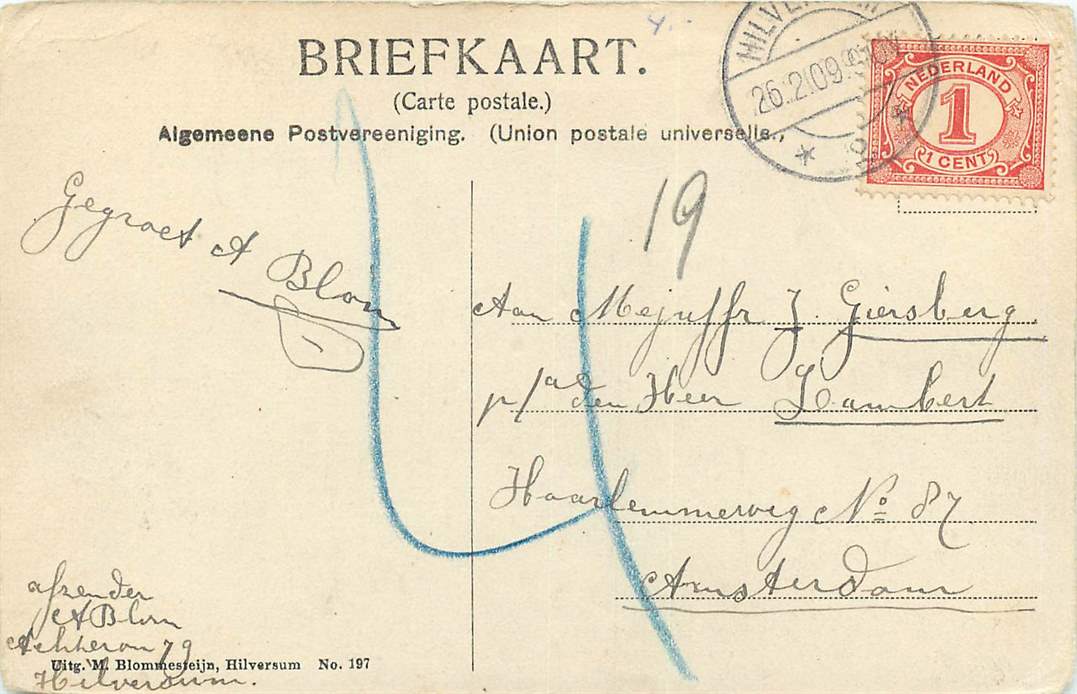 BRIEFKAART.
(Carte postale.)
Algemeene Postvereeniging. (Union postale universelle.)
HILVERSUM
26.2.09
NEDERLAND
1
1 CENT
4
19
Gegroet A Blom
Aan Mejuffr J. Giersberg
p/a den Heer Lambert
Haarlemmerweg No 87
Amsterdam
afzender
A Blom
79
Hilversum.
Uitg. M. Blommesteijn, Hilversum No. 197